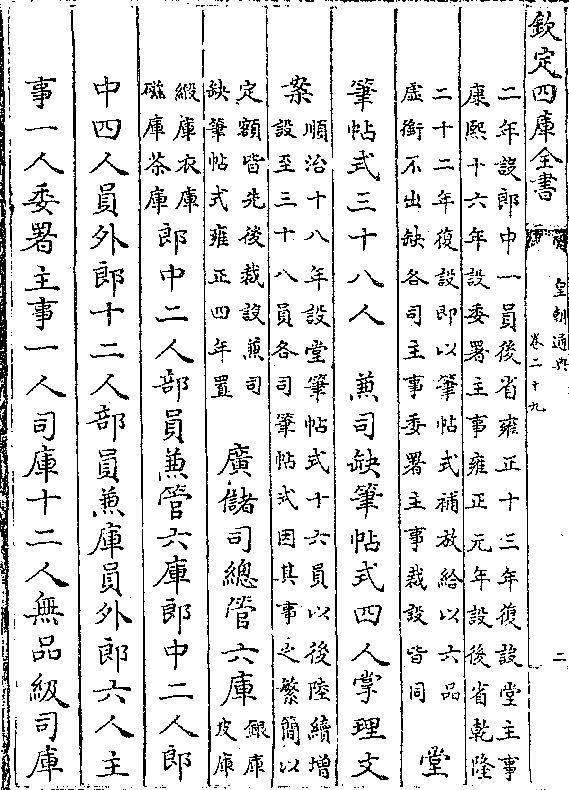 欽定四庫全書
皇朝通典
卷二十九
二
二年設郎中一員後省雍正十三年復設堂主事
康熙十六年設委署主事雍正元年設後省乾隆
二十二年復設即以筆帖式補放給以六品
虛銜不出缺各司主事委署主事裁設皆同
堂
筆帖式三十八人　兼司缺筆帖式四人掌理文
案
順治十八年設堂筆帖式十六員以後陸續增
設至三十八員各司筆帖式因其事之繁簡以
定額皆先後裁設兼司
缺筆帖式雍正四年置
廣儲司總管六庫
銀庫
皮庫
緞庫衣庫
磁庫茶庫
郎中二人部員兼管六庫郎中二人郎
中四人員外郎十二人部員兼庫員外郎六人主
事一人委署主事一人司庫十二人無品級司庫